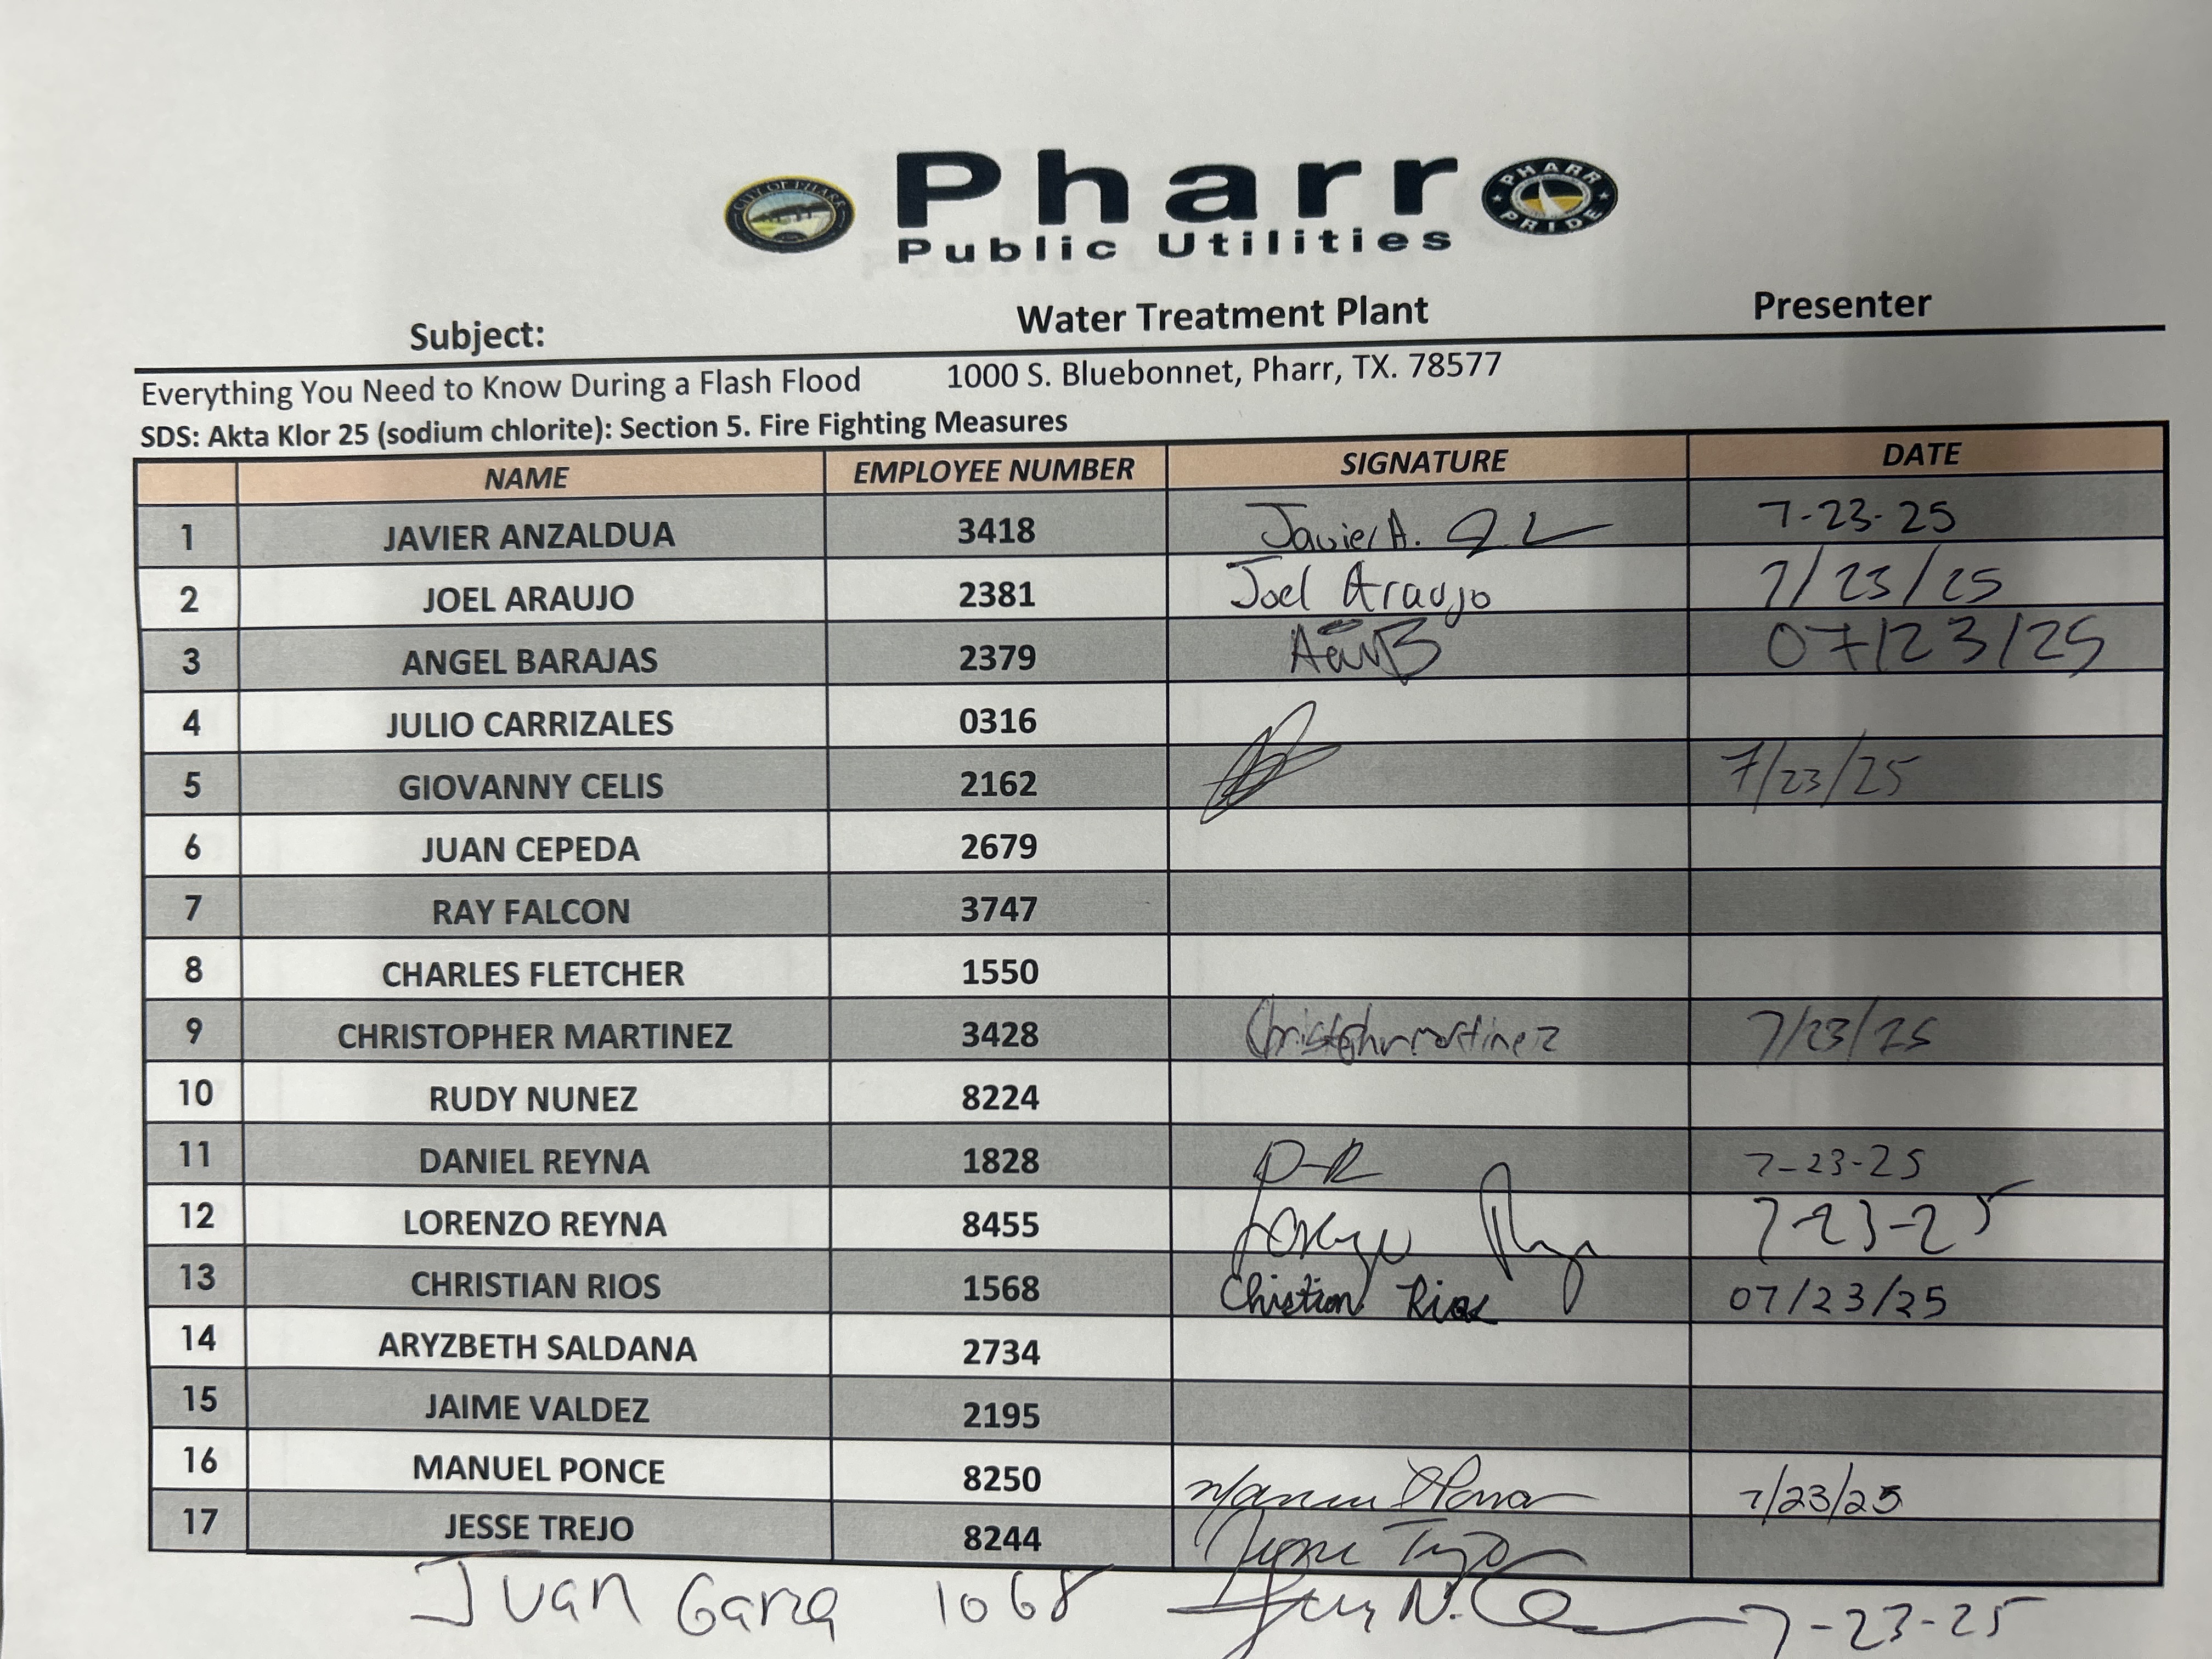 CITY OF PHARR
Pharr
PHARR PRIDE
Public Utilities
Subject: Water Treatment Plant Presenter
Everything You Need to Know During a Flash Flood 1000 S. Bluebonnet, Pharr, TX. 78577
SDS: Akta Klor 25 (sodium chlorite): Section 5. Fire Fighting Measures
NAME EMPLOYEE NUMBER SIGNATURE DATE
1 JAVIER ANZALDUA 3418 Javier A. 7-23-25
2 JOEL ARAUJO 2381 Joel Araujo 7/23/25
3 ANGEL BARAJAS 2379 07/23/25
4 JULIO CARRIZALES 0316
5 GIOVANNY CELIS 2162 7/23/25
6 JUAN CEPEDA 2679
7 RAY FALCON 3747
8 CHARLES FLETCHER 1550
9 CHRISTOPHER MARTINEZ 3428 7/23/25
10 RUDY NUNEZ 8224
11 DANIEL REYNA 1828 D-R 7-23-25
12 LORENZO REYNA 8455 7-23-25
13 CHRISTIAN RIOS 1568 Christian Rios 07/23/25
14 ARYZBETH SALDANA 2734
15 JAIME VALDEZ 2195
16 MANUEL PONCE 8250 7/23/25
17 JESSE TREJO 8244
Juan Garza 1068 7-23-25